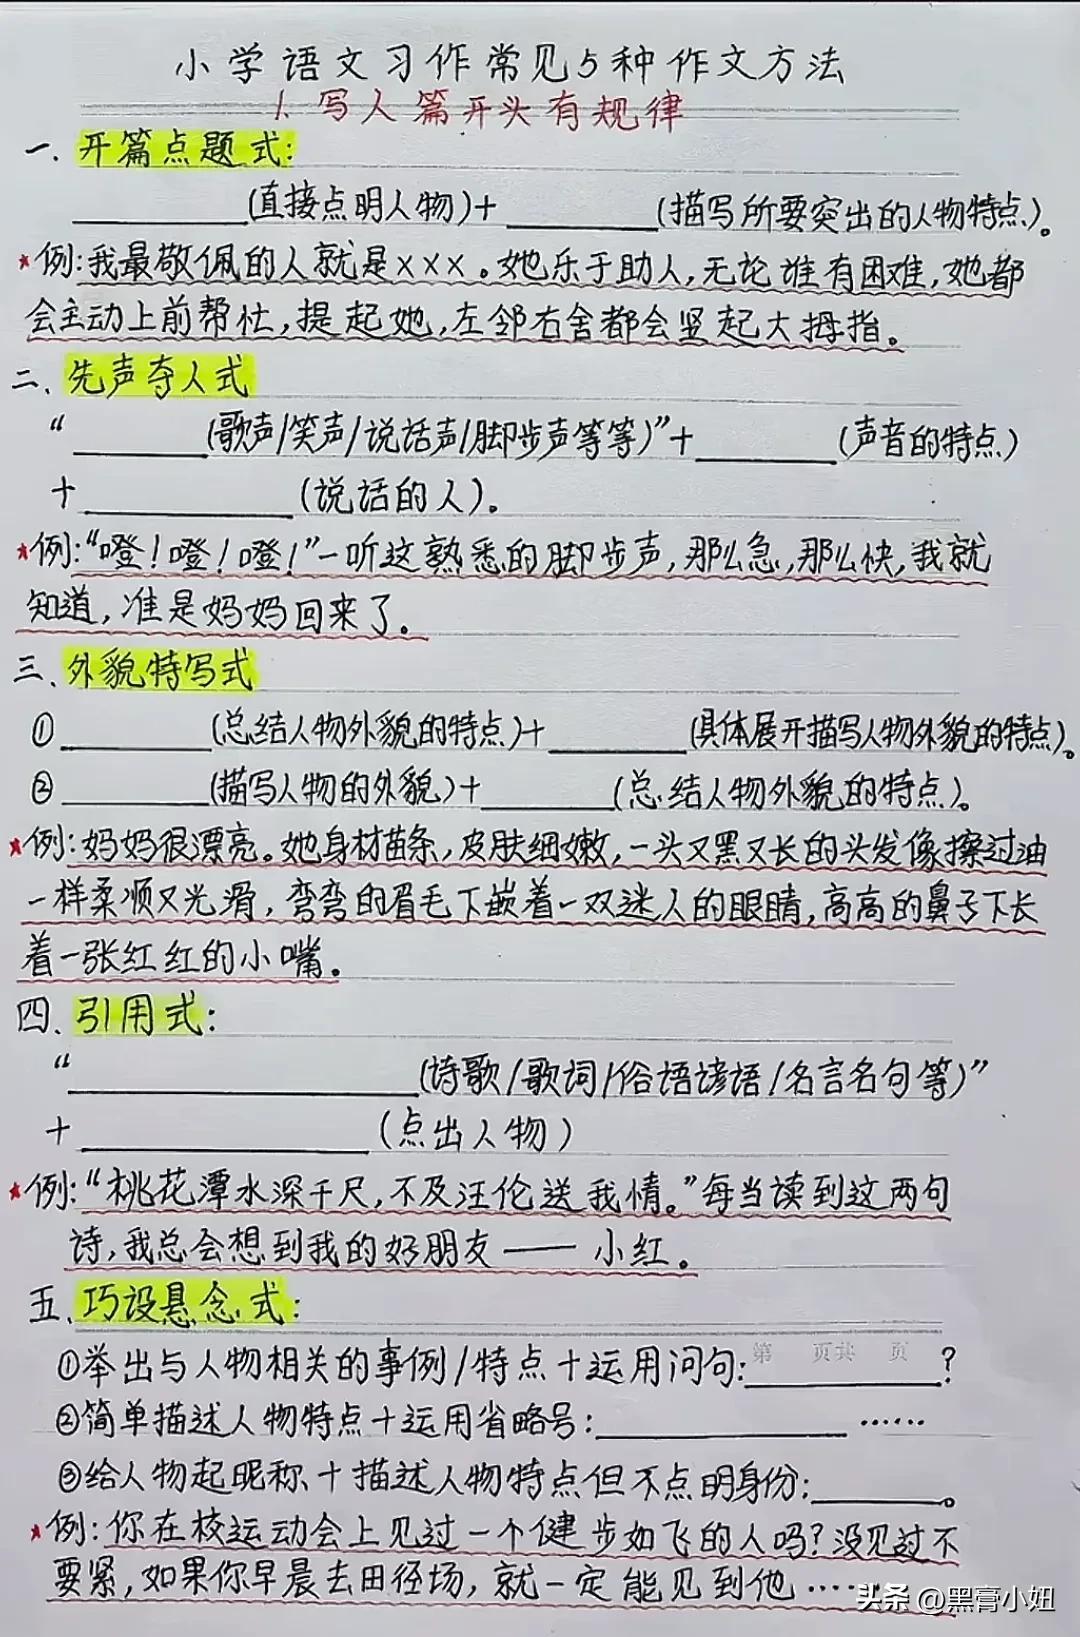 小学语文习作常见5种作文方法
1.写人篇开头有规律
一、开篇点题式:
________(直接点明人物)+________(描写所要突出的人物特点)。
★例:我最敬佩的人就是×××。她乐于助人,无论谁有困难,她都
会主动上前帮忙,提起她,左邻右舍都会竖起大拇指。
二、先声夺人式
“________(歌声/笑声/说话声/脚步声等等)”+________(声音的特点)
+________(说话的人)。
★例:“噔!噔!噔!”一听这熟悉的脚步声,那么急,那么快,我就
知道,准是妈妈回来了。
三、外貌特写式
①________(总结人物外貌的特点)+________(具体展开描写人物外貌的特点)。
②________(描写人物的外貌)+________(总结人物外貌的特点)。
★例:妈妈很漂亮。她身材苗条,皮肤细嫩,一头又黑又长的头发像擦过油
一样柔顺又光滑,弯弯的眉毛下嵌着一双迷人的眼睛,高高的鼻子下长
着一张红红的小嘴。
四、引用式:
“________(诗歌/歌词/俗语谚语/名言名句等)”
+________(点出人物)
★例:“桃花潭水深千尺,不及汪伦送我情。”每当读到这两句
诗,我总会想到我的好朋友——小红。
五、巧设悬念式:
第 页共 页
①举出与人物相关的事例/特点+运用问句:________?
②简单描述人物特点+运用省略号:________……
③给人物起昵称+描述人物特点但不点明身份:________。
★例:你在校运动会上见过一个健步如飞的人吗?没见过不
要紧,如果你早晨去田径场,就一定能见到他……
头条 @黑膏小妞